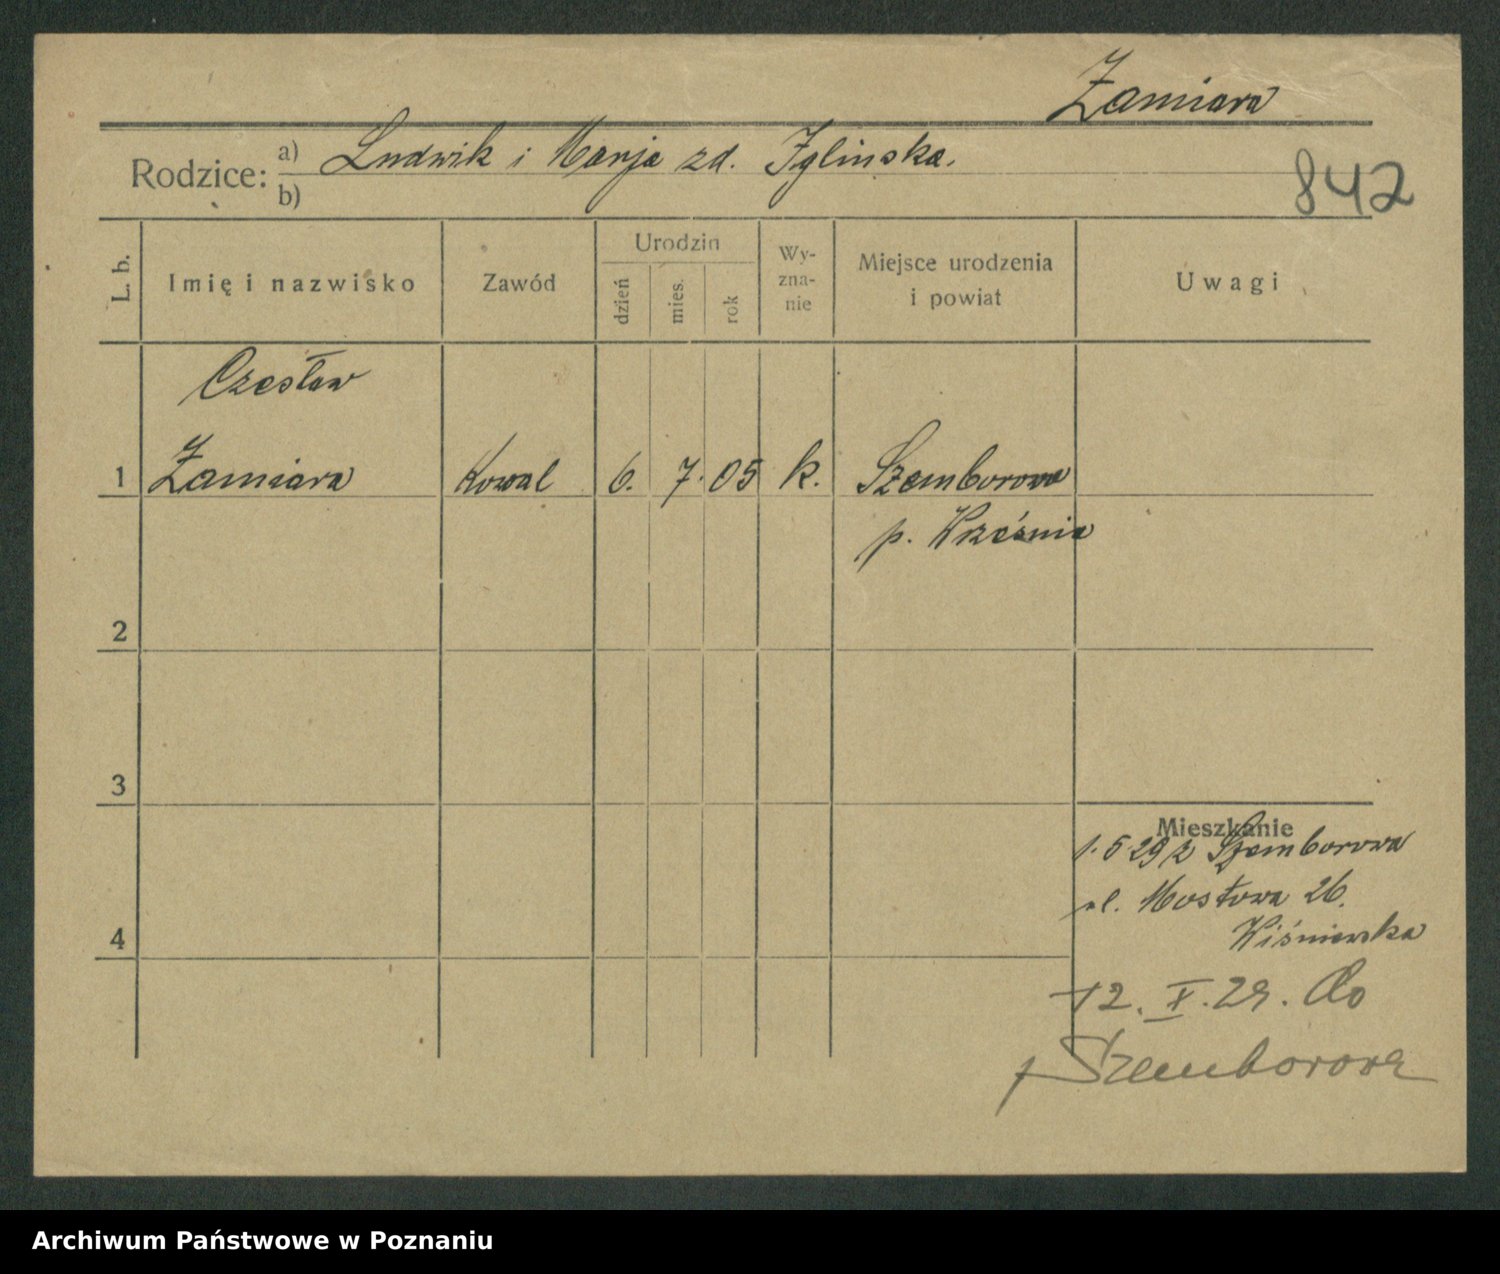 Żamiara
Rodzice: a) Ludwik i Marja zd. Iglinska.
b)
842
L. b. Imię i nazwisko Zawód Urodzin dzień mies. rok Wy-zna-nie Miejsce urodzenia i powiat Uwagi
Czesław
1 Żamiara Kowal 6. 7. 05 k. Szemborowo
p. Września
2
3
Mieszkanie
1.5.29 z Szemborowa
ul. Mostowa 26.
4 Wiśniewska
12. X. 29. do
Szemborowa
Archiwum Państwowe w Poznaniu